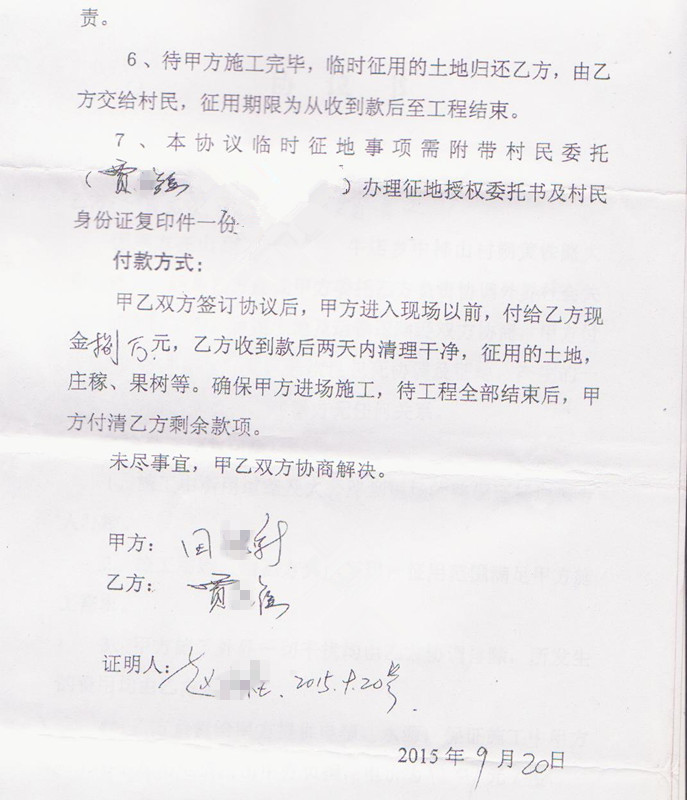 责。
6、待甲方施工完毕，临时征用的土地归还乙方，由乙
方交给村民，征用期限为从收到款后至工程结束。
7、本协议临时征地事项需附带村民委托
（贾）办理征地授权委托书及村民
身份证复印件一份
付款方式：
甲乙双方签订协议后，甲方进入现场以前，付给乙方现
金捌万元，乙方收到款后两天内清理干净，征用的土地，
庄稼、果树等。确保甲方进场施工，待工程全部结束后，甲
方付清乙方剩余款项。
未尽事宜，甲乙双方协商解决。
甲方：田
乙方：贾
证明人：赵 2015.9.20号
2015年9月20日